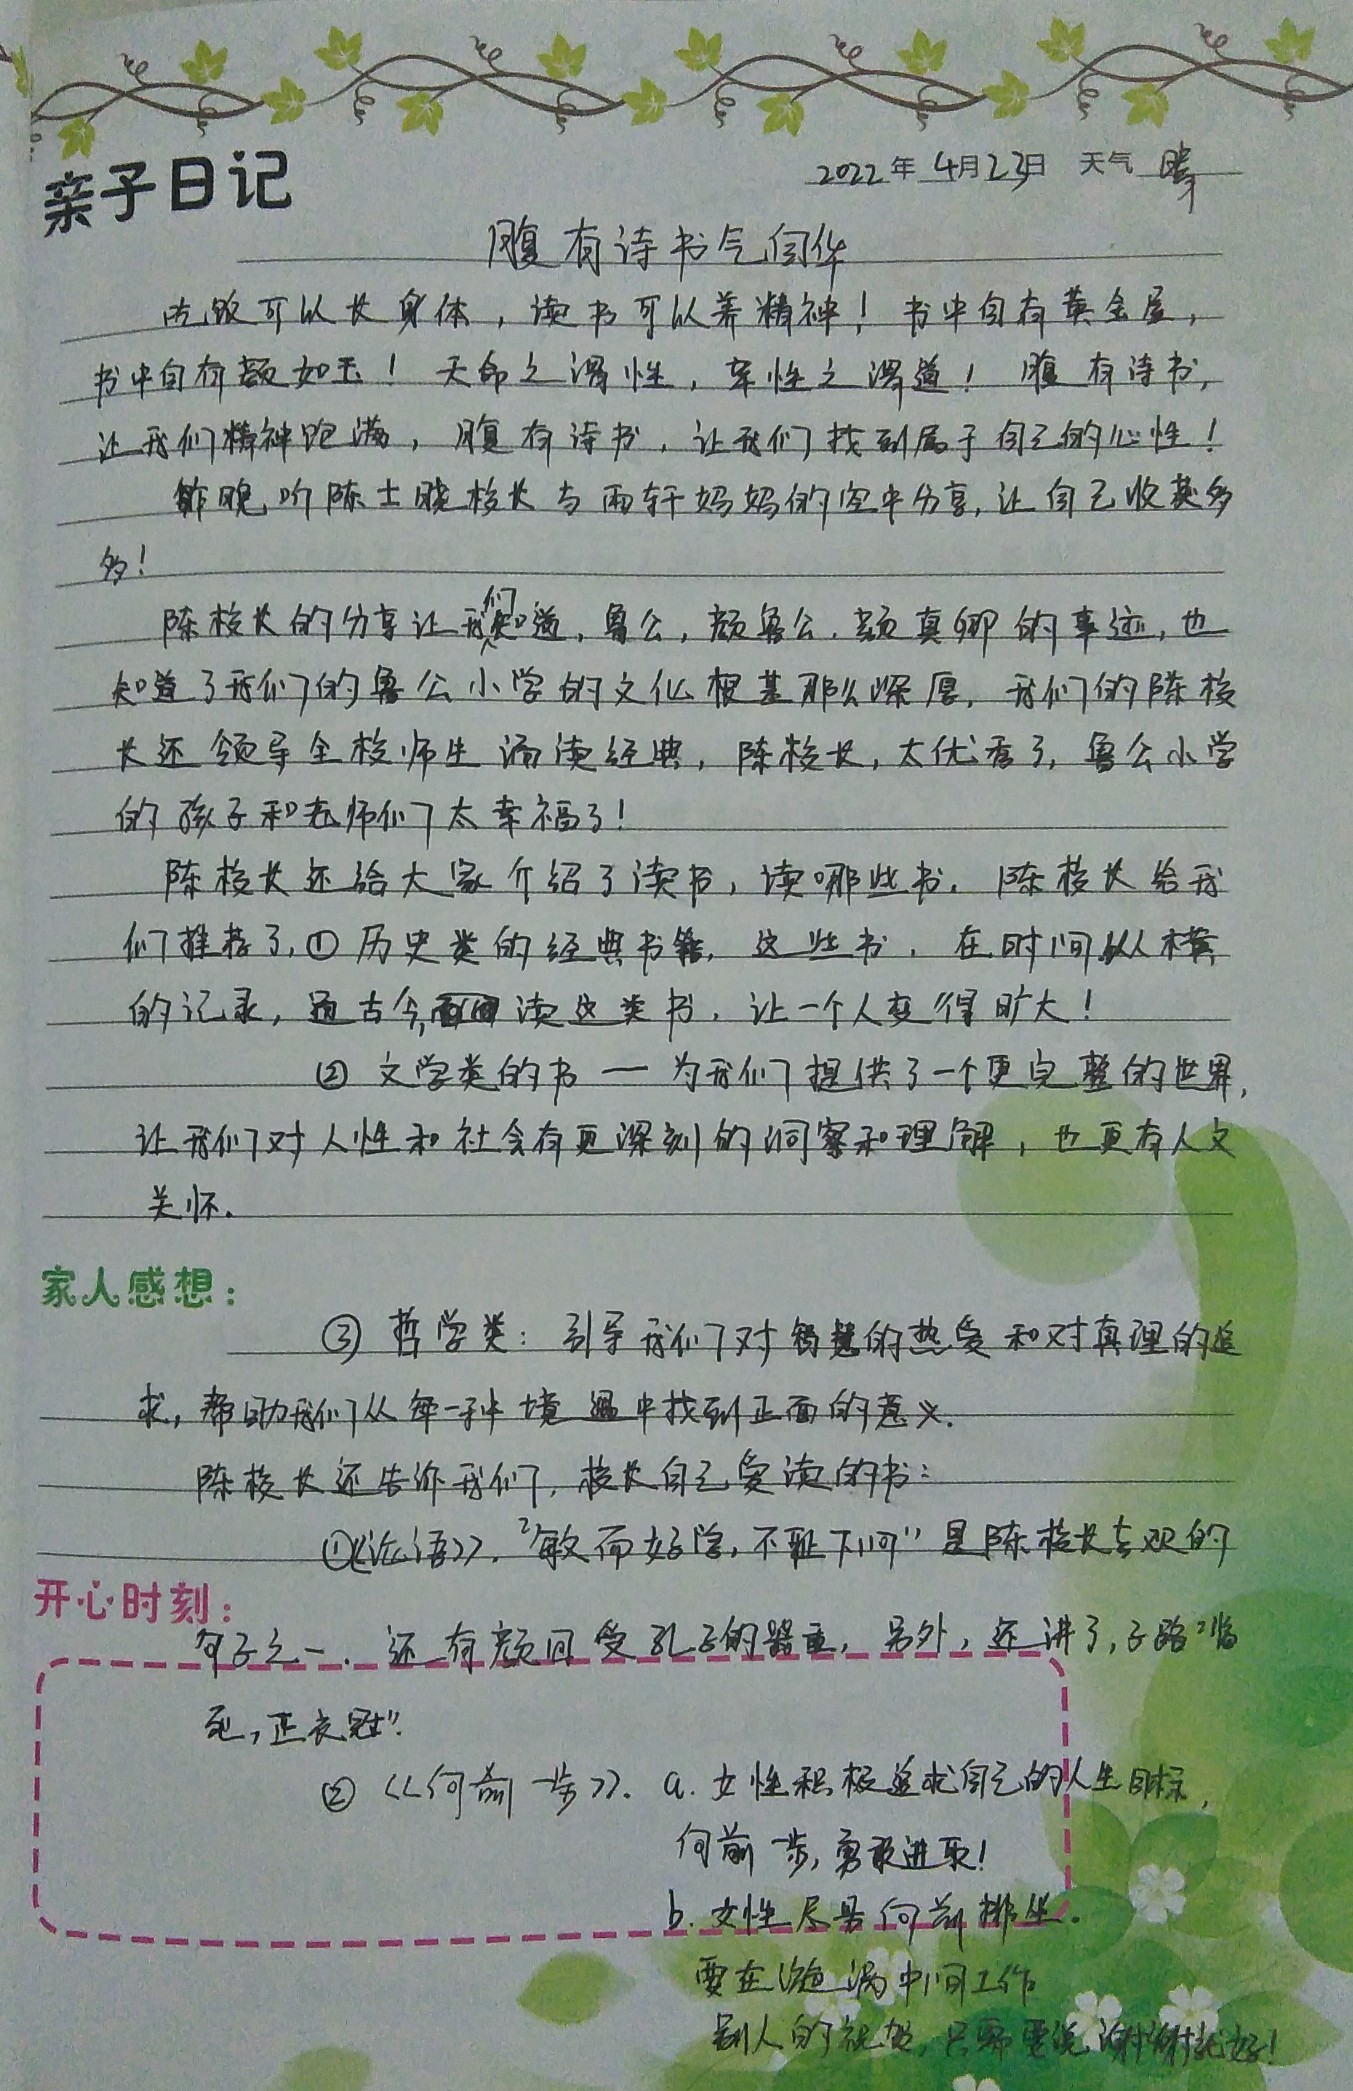 亲子日记
2022年 4月23日 天气 晴
腹有诗书气自华
吃饭可以长身体，读书可以养精神！书中自有黄金屋，
书中自有颜如玉！天命之谓性，率性之谓道！腹有诗书，
让我们精神饱满，腹有诗书，让我们找到属于自己的心性！
昨晚听陈士晓校长与雨轩妈妈的空中分享，让自己收获多
多！
陈校长的分享让我们知道，鲁公，颜鲁公，颜真卿的事迹，也
知道了我们的鲁公小学的文化根基那么深厚，我们的陈校
长还领导全校师生诵读经典，陈校长，太优秀了，鲁公小学
的孩子和老师们太幸福了！
陈校长还给大家介绍了读书，读哪些书。陈校长给我
们推荐了，①历史类的经典书籍，这些书，在时间纵横
的记录，通古今，读这类书，让一个人变得旷大！
②文学类的书一为我们提供了一个更完整的世界，
让我们对人性和社会有更深刻的洞察和理解，也更有人文
关怀。
家人感想：
③哲学类：引导我们对智慧的热爱和对真理的追
求，帮助我们从每一种境遇中找到正面的意义。
陈校长还告诉我们，校长自己爱读的书：
①《论语》，“敏而好学，不耻下问”是陈校长喜欢的
开心时刻：
句子之一，还有颜回受孔子的器重，另外，还讲了，子路“临
死，正衣冠”.
②《向前一步》. a. 女性积极追求自己的人生目标，
向前一步，勇敢进取！
b. 女性尽量向前排坐.
要在漩涡中间工作
别人的祝贺，只需要说谢谢就好！